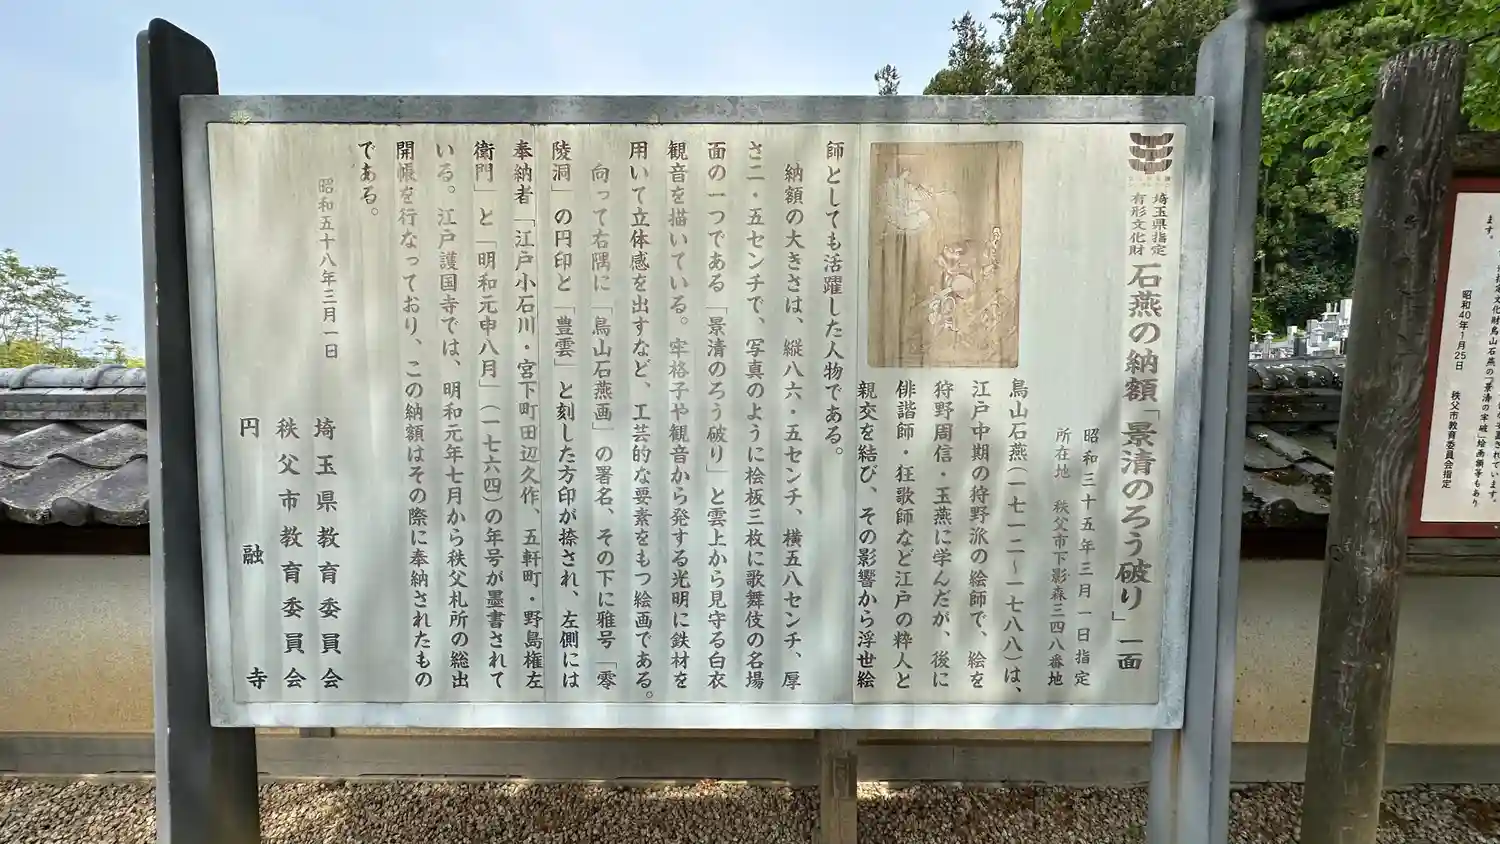 埼玉県指定
有形文化財
石燕の納額「景清のろう破り」 一面
昭和三十五年三月一日指定
所在地 秩父市下影森三四八番地
鳥山石燕(一七一二~一七八八)は、
江戸中期の狩野派の絵師で、絵を
狩野周信・玉燕に学んだが、後に
俳諧師・狂歌師など江戸の粋人と
親交を結び、その影響から浮世絵
師としても活躍した人物である。
納額の大きさは、縦八六・五センチ、横五八センチ、厚
さ二・五センチで、写真のように桧板三枚に歌舞伎の名場
面の一つである「景清のろう破り」と雲上から見守る白衣
観音を描いている。牢格子や観音から発する光明に鉄材を
用いて立体感を出すなど、工芸的な要素をもつ絵画である。
向って右隅に「鳥山石燕画」の署名、その下に雅号「零
陵洞」の円印と「豊雲」と刻した方印が捺され、左側には
奉納者「江戸小石川・宮下町田辺久作、五軒町・野島権左
衛門」と「明和元申八月」(一七六四)の年号が墨書されて
いる。江戸護国寺では、明和元年七月から秩父札所の総出
開帳を行なっており、この納額はその際に奉納されたもの
である。
昭和五十八年三月一日
埼玉県教育委員会
秩父市教育委員会
円融寺
ます。
昭和40年1月25日
秩父市教育委員会指定